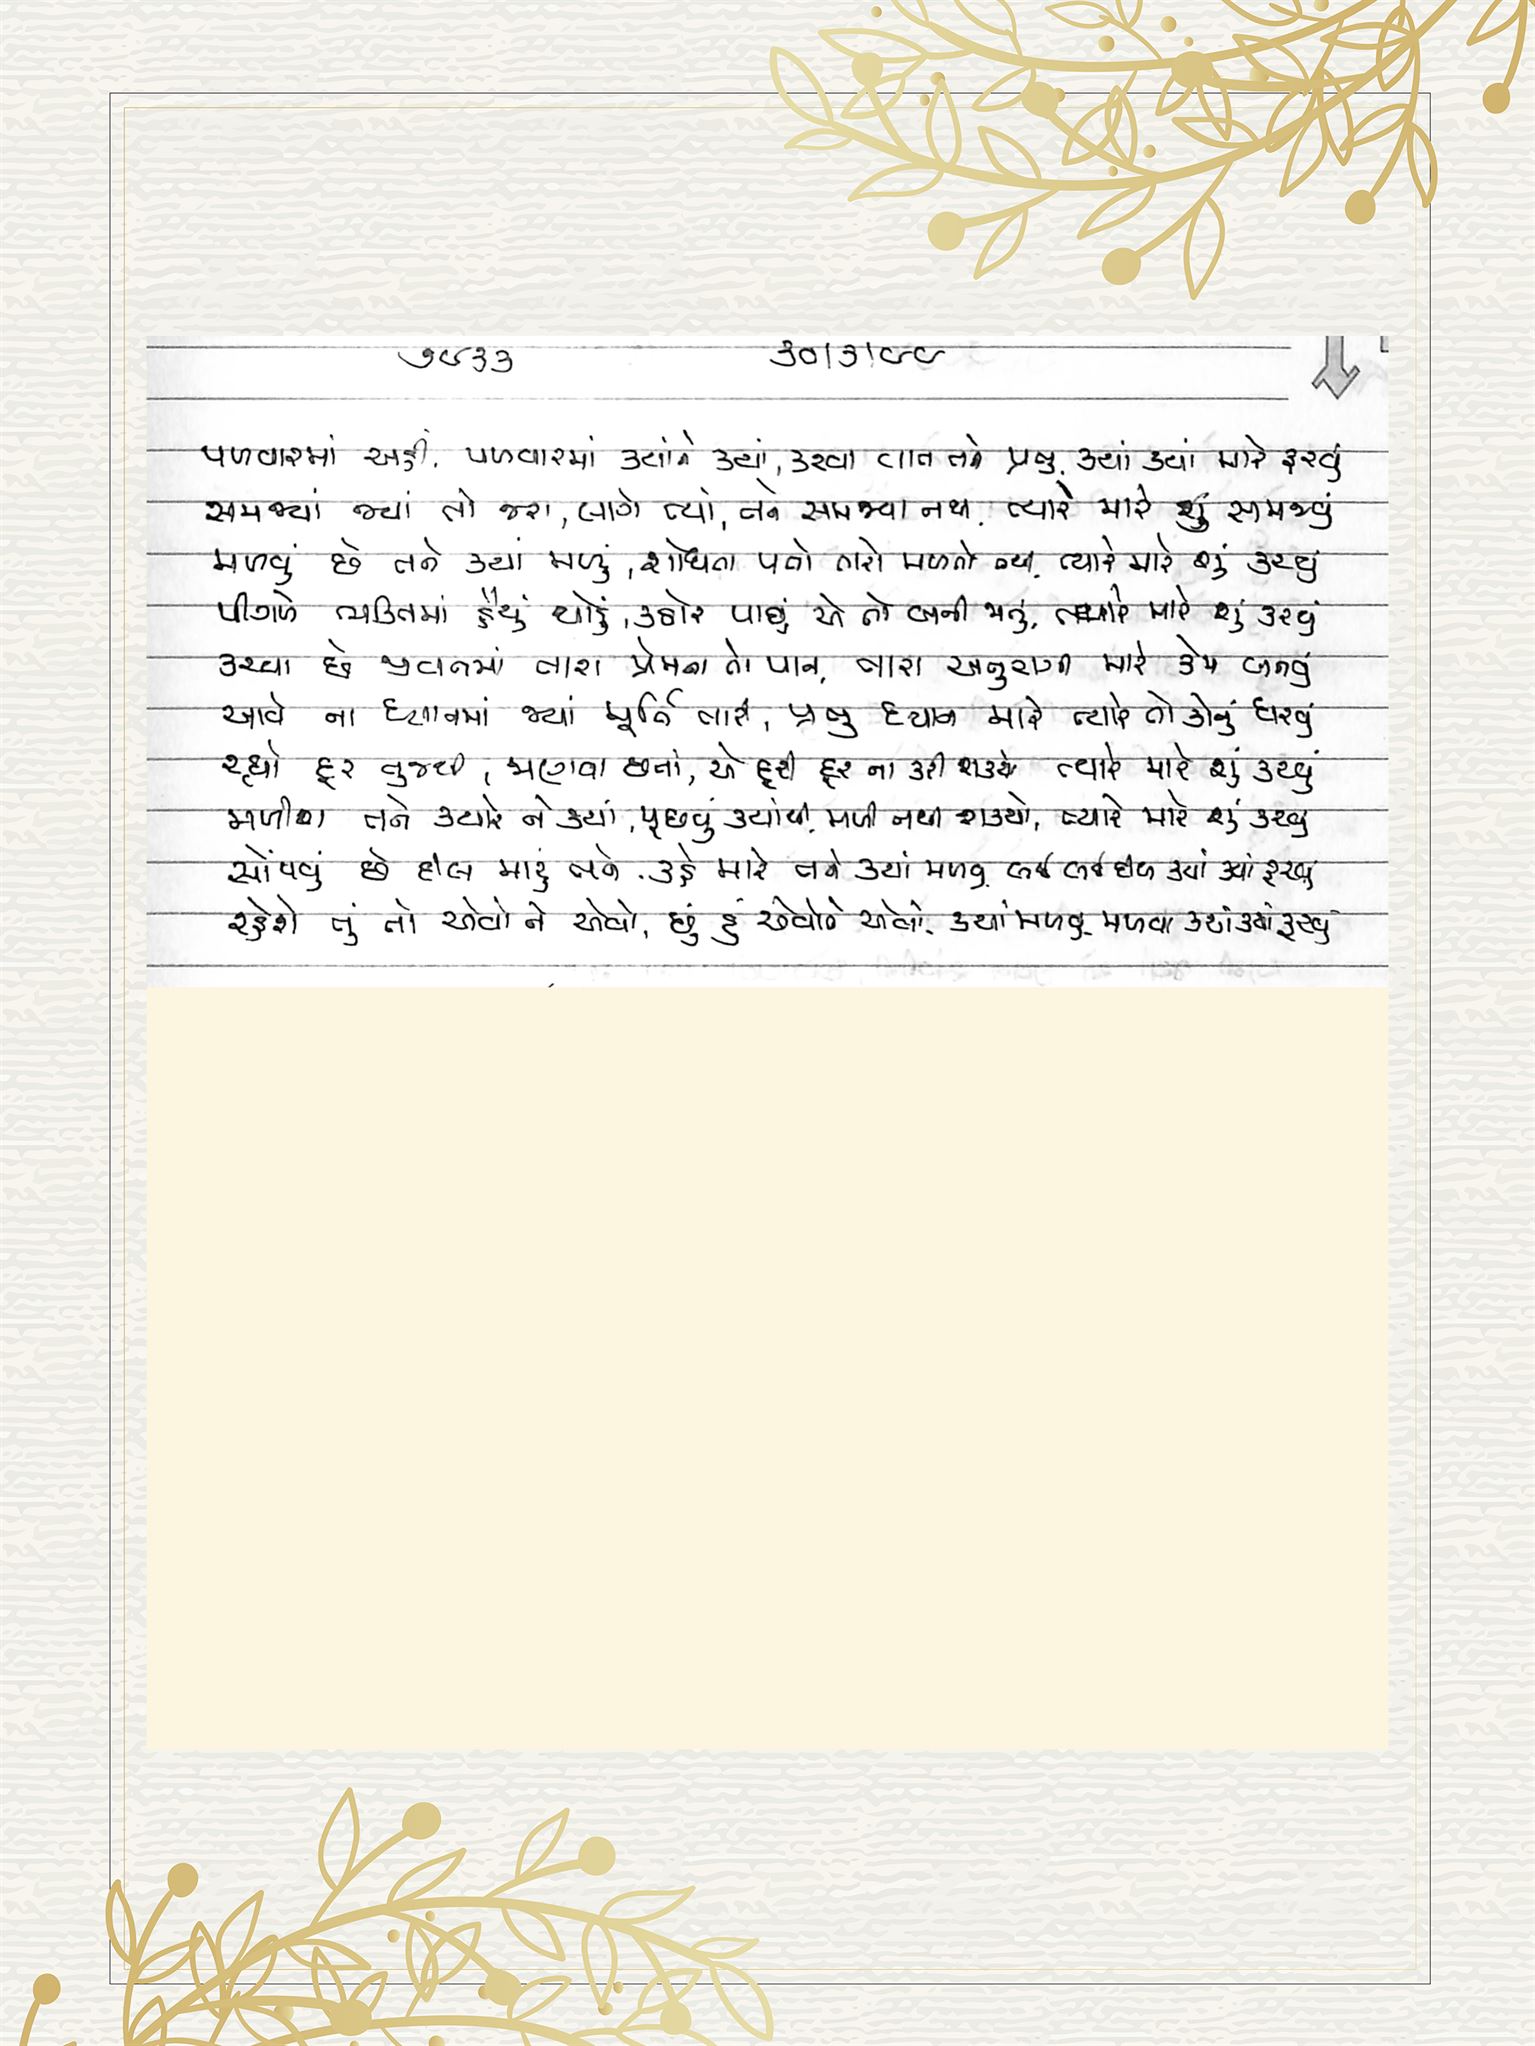 ૭૯૩૩ ૩૦/૩/૯૯
પળવારમાં અહીં, પળવારમાં ક્યાંને ક્યાં, કરવા વાત તને પ્રભુ, ક્યાં ક્યાં મારે ફરવું
સમજ્યાં જ્યાં તો જરા, લાગે ત્યાં, તને સમજ્યા નથી, ત્યારે મારે શું સમજવું
મળવું છે તને ક્યાં મળું, શોધતા પતો તારો મળતો નથી, ત્યારે મારે શું કરવું
પીગળે ભક્તિમાં હૈયું થોડું, કઠોર પાછું એ તો બની જાતું, ત્યારે મારે શું કરવું
કરવા છે જીવનમાં તારા પ્રેમના તો પાન, તારા અનુરાગી મારે કેમ બનવું
આવે ના ધ્યાનમાં જ્યાં મૂર્તિ તારી, પ્રભુ ધ્યાન મારે ત્યારે તો કોનું ધરવું
રહ્યો દૂર તુજથી, જાણવા છતાં, એ દૂરી દૂર ના કરી શક્યો ત્યારે મારે શું કરવું
મળીશ તને ક્યારે ને ક્યાં, પૂછવું ક્યાંથી, મળી નથી શક્યો, ત્યારે મારે શું કરવું
સોંપવું છે દીલ મારું તને, કહે મારે તને ક્યાં મળવું, લઈ લઈ દીલ ક્યાં ક્યાં ફરવું
રહેશે તું તો એવો ને એવો, છું હું એવોને એવો, ક્યાં મળવું, મળવા ક્યાં ક્યાં ફરવું